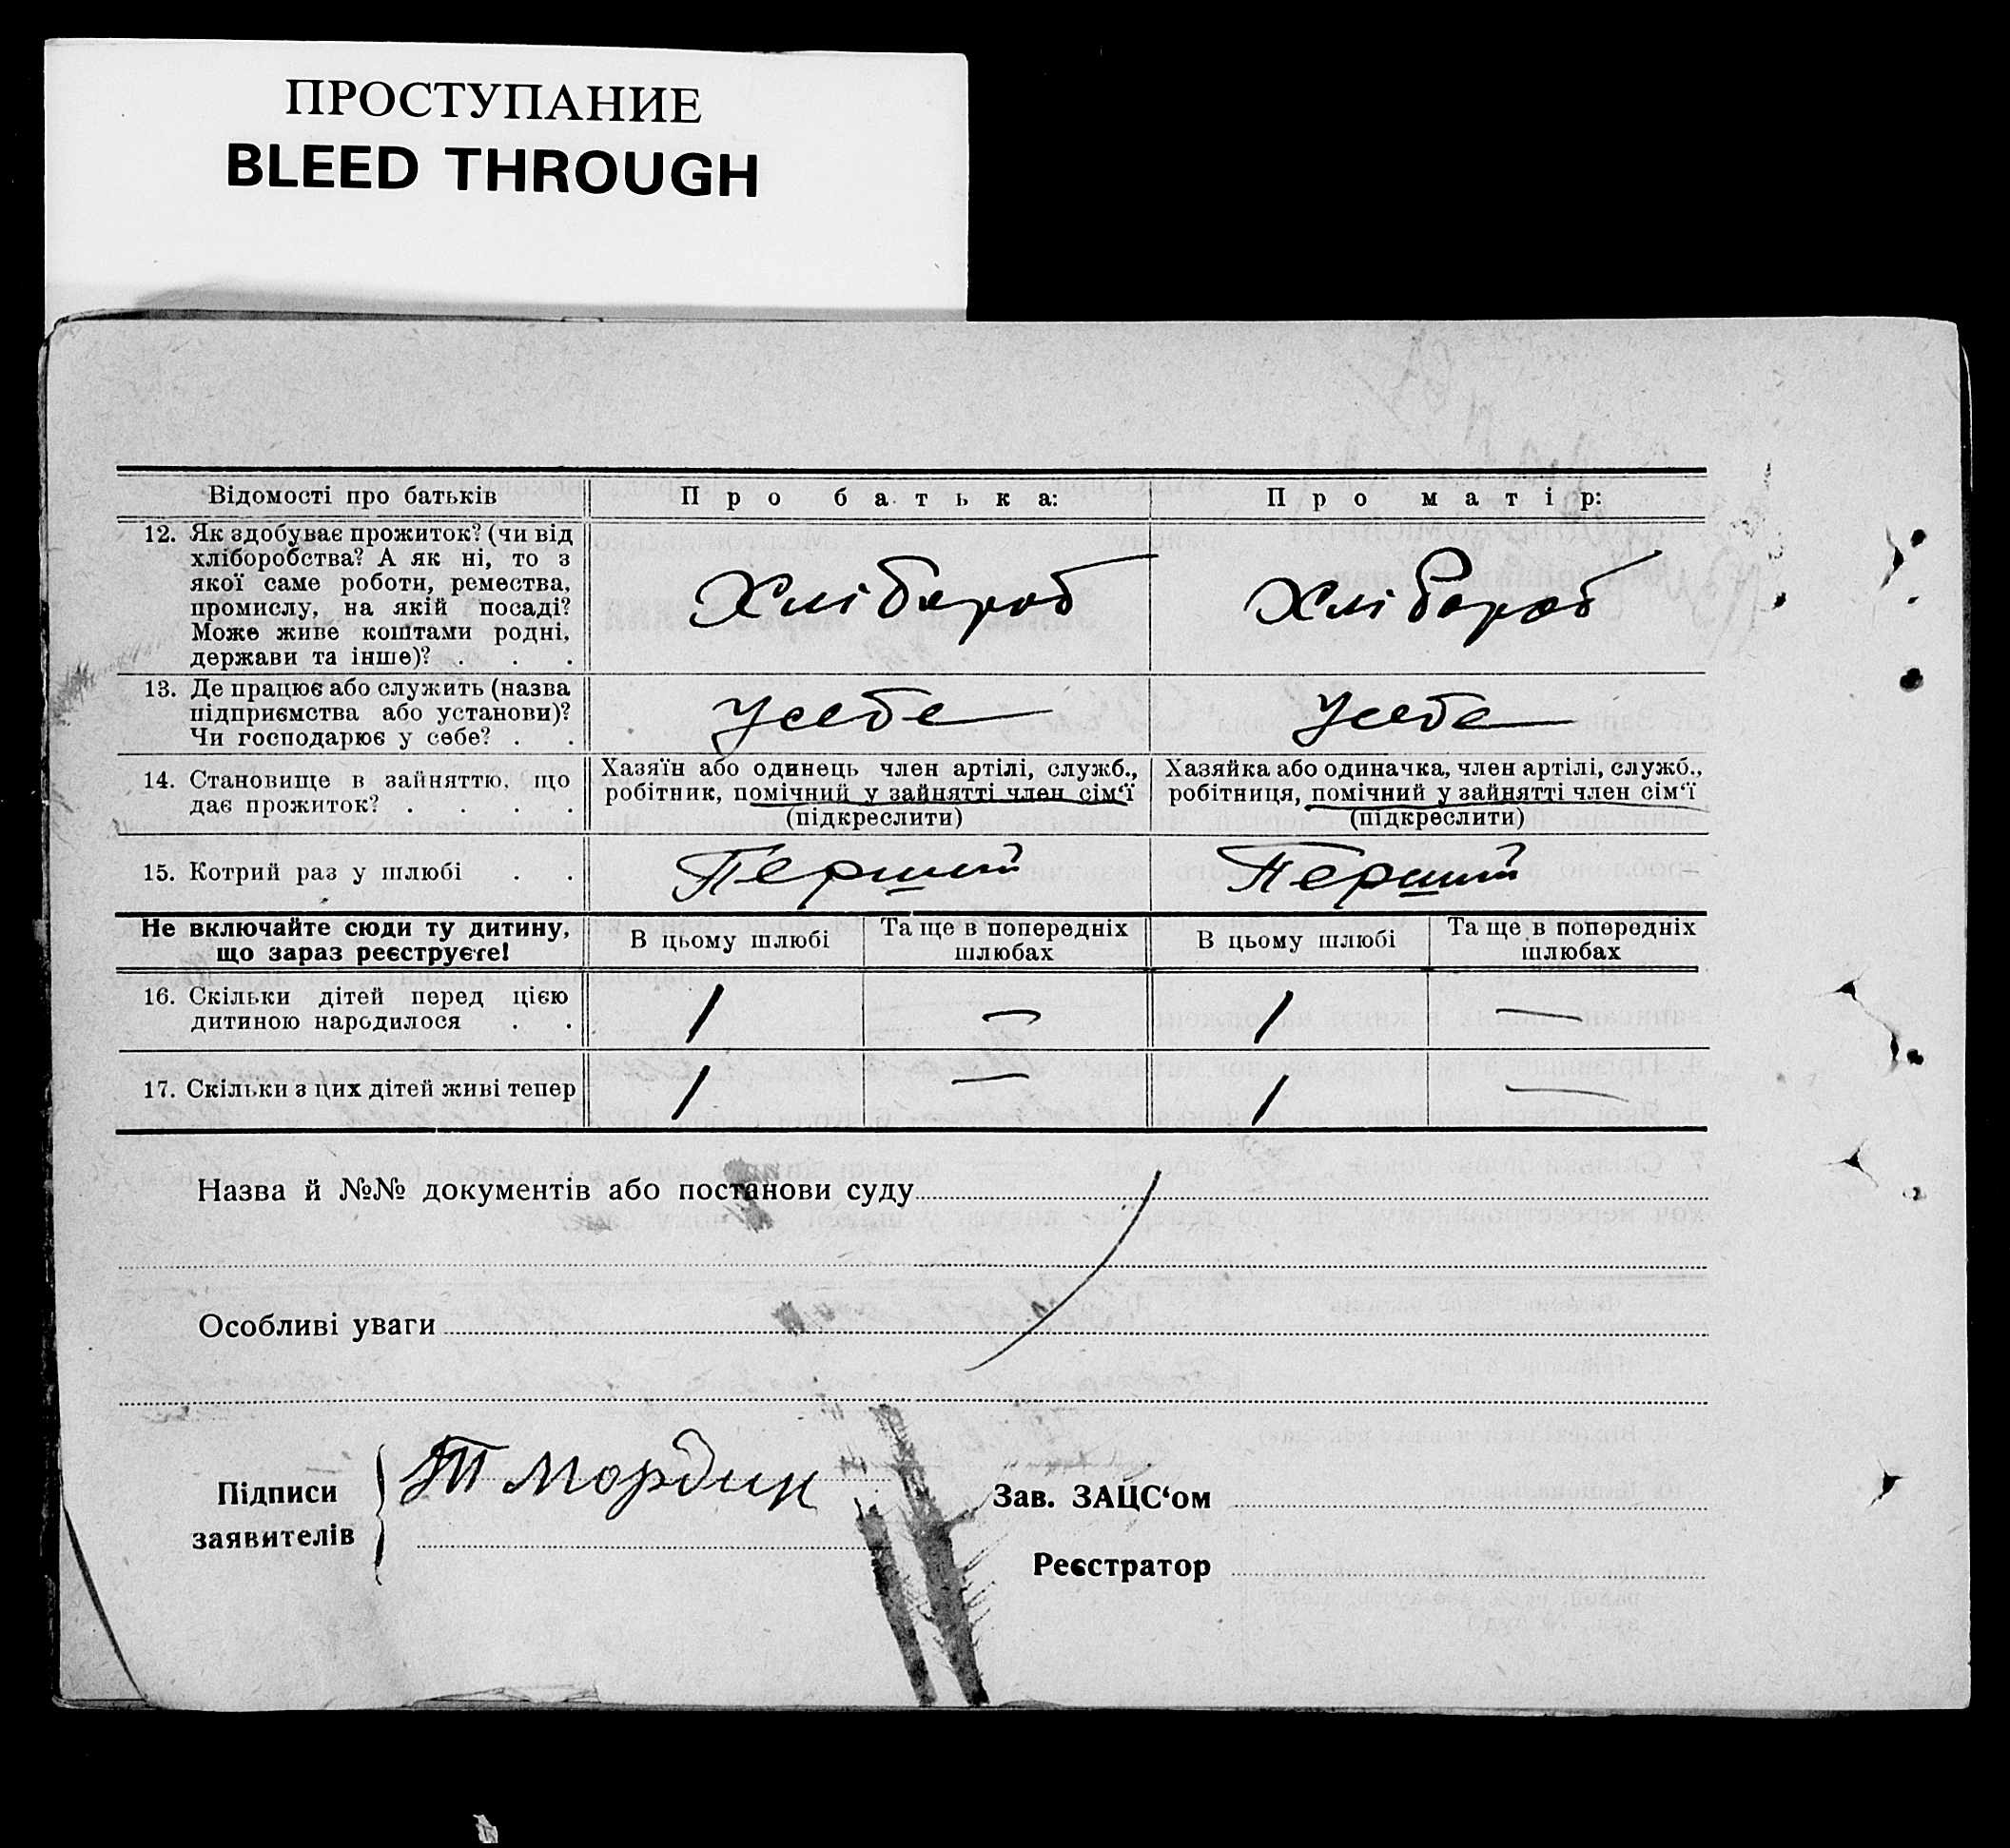 ПРОСТУПАНИЕ
BLEED THROUGH
Відомості про батьків
Про батька:
Про матір:
12. Як здобуває прожиток? (чи від
хліборобства? А як ні, то з
якої саме роботи, ремества,
промислу, на якій посаді?
Може живе коштами родні,
держави та інше)? . . .
Хлібороб
Хлібороб
13. Де працює або служить (назва
підприємства або установи)?
Чи господарює у себе? . .
Усебе
Усебе
14. Становище в зайняттю, що
дає прожиток? . . . .
Хазяїн або одинець член артілі, служб.,
робітник, помічний у зайнятті член сім‘ї
(підкреслити)
Хазяйка або одиначка, член артілі, служб.,
робітниця, помічний у зайнятті член сім‘ї
(підкреслити)
15. Котрий раз у шлюбі . .
Перший
Перший
Не включайте сюди ту дитину,
що зараз реєструєте!
В цьому шлюбі
Та ще в попередніх
шлюбах
В цьому шлюбі
Та ще в попередніх
шлюбах
16. Скільки дітей перед цією
дитиною народилося . .
1
—
1
—
17. Скільки з цих дітей живі тепер
1
—
1
—
Назва й №№ документів або постанови суду
Особливі уваги
Підписи
заявителів
Мордик
Зав. ЗАЦС‘ом
Реєстратор